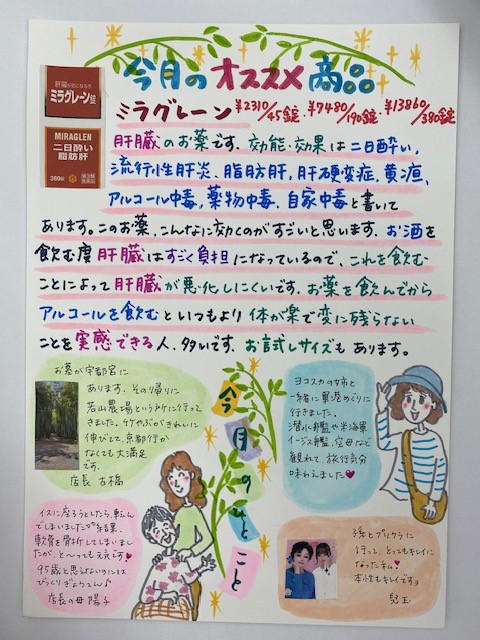 今月のオススメ商品
肝臓が気になる方
ミラグレーン錠
MIRAGLEN
二日酔い
脂肪肝
380錠
ミラグレーン ¥2310/45錠、¥7480/190錠、¥13860/380錠
肝臓のお薬です。効能・効果は二日酔い、
流行性肝炎、脂肪肝、肝硬変症、黄疸、
アルコール中毒、薬物中毒、自家中毒と書いて
あります。このお薬、こんなに効くのがすごいと思います。お酒を
飲む度肝臓はすごく負担になっているので、これを飲む
ことによって肝臓が悪化しにくいです。お薬を飲んでから
アルコールを飲むといつもより体が楽で変に残らない
ことを実感できる人、多いです。お試しサイズもあります。
お墓が宇都宮に
あります。その帰りに
若山農場という所に行って
きました。竹やぶがきれいに
伸びてて、京都行か
なくても大満足
です。
店長 古橋
今月のひとこと
ヨコスカの姉と
一緒に軍港めぐりに
行きました。
潜水艦や米海軍
イージス艦、空母など
観れて、旅行気分
味わえました♥
イスに座ろうとしたら、転ん
でしまいました。結果、
軟骨を骨折してしまいまし
たが、とーっても元気です♥
95歳と思えないのには
びっくりぎょうてん♪
店長の母 陽子
孫とプリクラに
行って、とってもキレイに
なった私♥
本性もキレイですョ
児玉